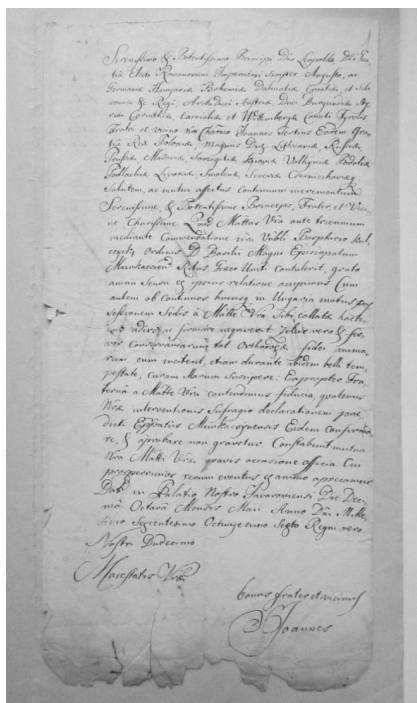 Serenissimo & Potentissimo Principi Dno Leopoldo, Dei Gra
tia Electo Romanorum Imperatori Semper Augusto, ac
Germaniæ Hungariæ Bohemiæ Dalmatiæ Croatiæ et Scla
voniæ & Regi, Archiduci Austriæ, Duci Burgundiæ Sty
riæ Carinthiæ, Carnioliæ et Wittembergæ Comiti Tyrolis,
Fratri et vicino Charmo Joannes Tertius Eadem Gra
tia Rex Poloniæ, Magnus Dux Lithuaniæ, Russiæ,
Prussiæ, Masoviæ, Samogitiæ Kijoviæ Volhyniæ Podoliæ
Podlachiæ Livoniæ Smolensciæ, Severiæ Czerniechoviæq
Salutem, ac mutui affectus continuum incrementum.
Serenissime, & Potentissime Princeps, Frater, et Vici
ne Charissime. Quod Mattas Vra ante triennium
mediante Commendatione nra Vnbli Porphirio Kul
czycky Ordinis D. Basilii Magni Episcopatum
Munkacien Ritus Græco Unit. contulerit, grato
animi Sensu ex ipsius relatione accepimus Cum
autem ob Continuos in Ungaria motus pos
sessionem Sedis à Matte Vra Sibi collatæ hacte
nus adire
fidei
eum incitent, etiam durante ibidem belli tem
pestate, curam Suscipere: Eapropter Fra
ternà a Matte Vra contendimus fiducia, quatenus
Nræ interventionis Suffragio declarationem præ
dicti Eppatus Munkacziensis Eidem confirma
re, & aprobare non gravetur Constabunt mutua
Nra Matti Vræ quavis occasione officia. Cui
prosperrimos rerum eventus ex animo apprecamur
Dat in Palatio Nostro Javaroviensi Die Deci
mâ Octavâ Mensis Maii Anno Dni Mille
simo Sexcentesimo Octuagesimo Sexto Regni vero
Nostri Duodecimo
Maiestatis Vræ
bonus frater et vicinus
Joannes